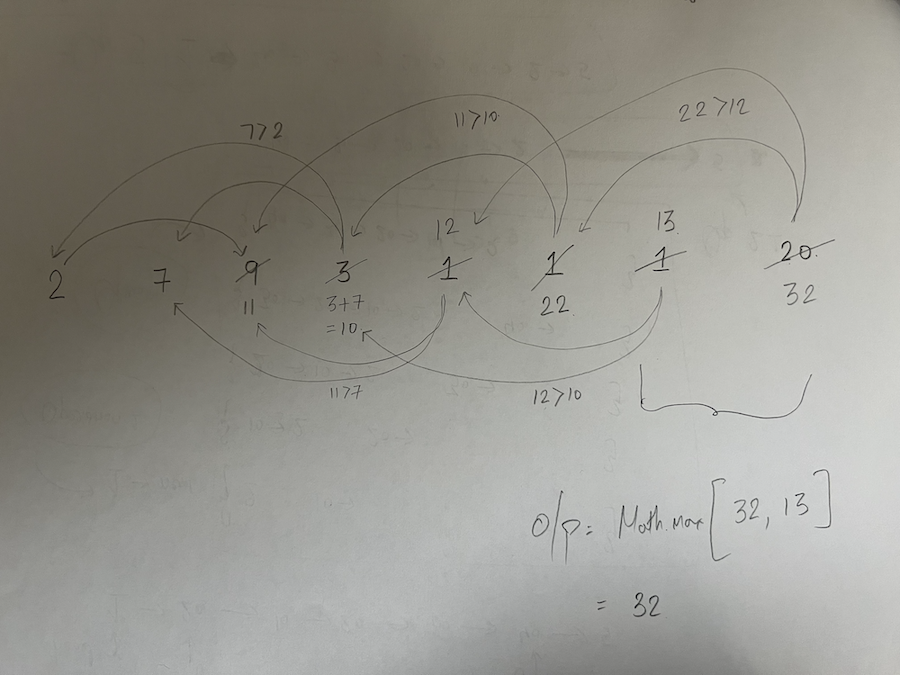 7>2
11>10
22>12
12
13
2 7 9 3 1 1 1 20
11
3+7
=10
22
32
11>7
12>10
O/p = Math.max [32, 13]
= 32